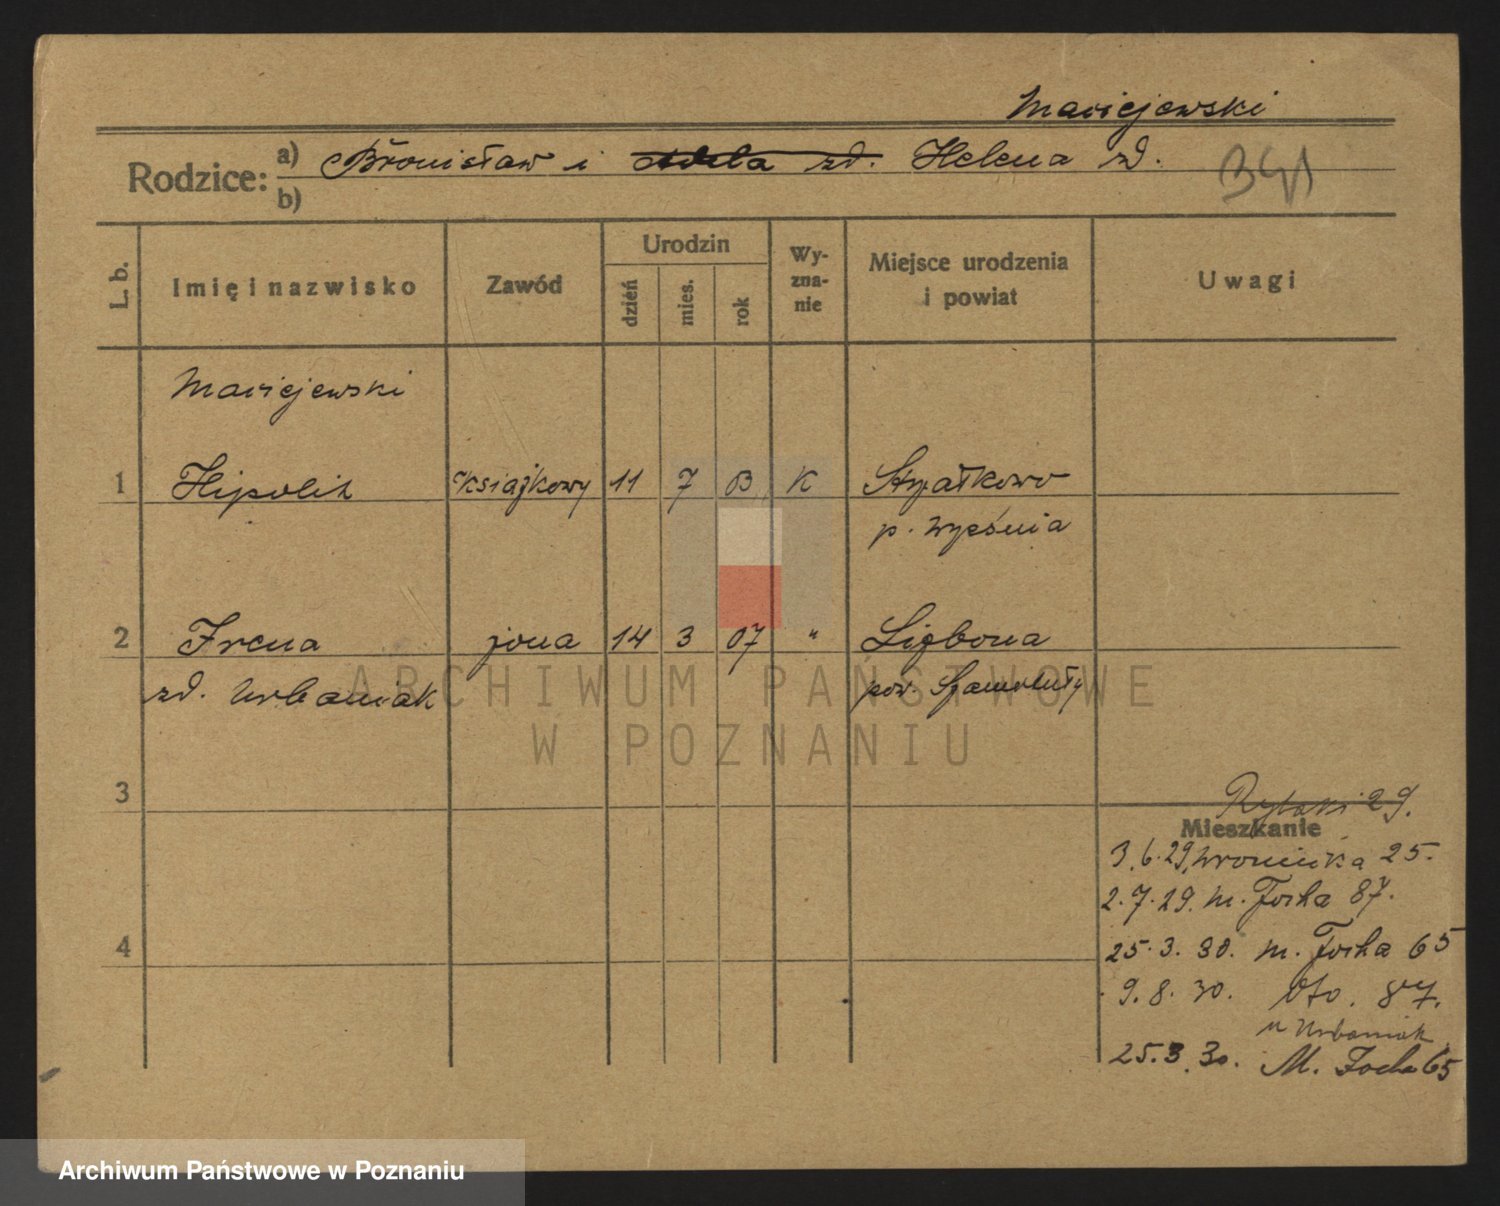 Maciejewski
Rodzice: a) Bronisław i Adela zd. Helena zd.
b)
L. b.
Imię i nazwisko
Zawód
Urodzin
dzień
mies.
rok
Wy-
zna-
nie
Miejsce urodzenia
i powiat
Uwagi
Maciejewski
1 Hipolit książkowy 11 7 03 K Strzałkowo
p. Września
2 Irena żona 14 3 07 " Lizbona
zd. Urbaniak pow. Szamotuły
3
Rybaki 29.
Mieszkanie
3.6.29. Wroniecka 25.
2.7.29. M. Focha 87.
4
25.3.30. M. Focha 65
9.8.30. 87.
u Urbaniak
25.3.30. M. Focha 65
ARCHIWUM PAŃSTWOWE
W POZNANIU
Archiwum Państwowe w Poznaniu